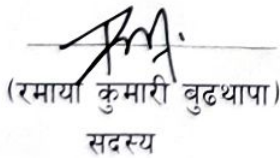 (रमाया कुमारी बुढथापा)
सदस्य